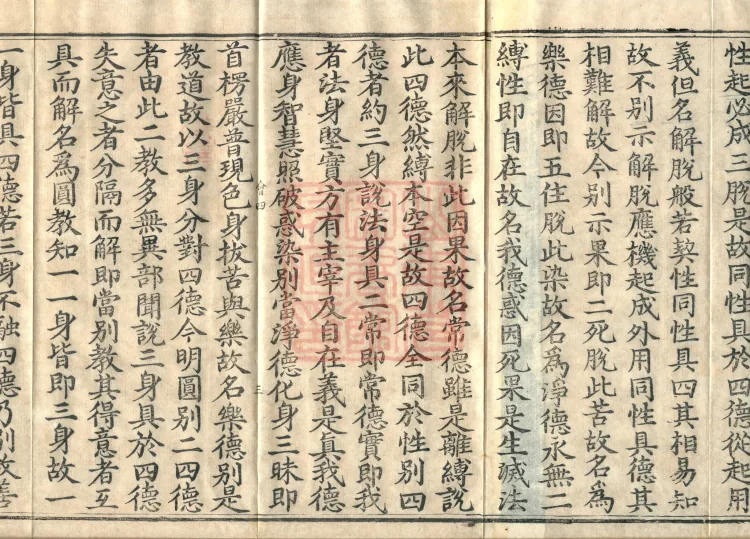 性起必成三脫是故同性具於四德從起用
義但名解脫般若契性同性具四其相易知
故不別示解脫應機起成外用同性具德其
相難解故今別示果即二死脫此苦故名為
樂德因即五住脫此染故名為淨德永無二
縛性即自在故名我德惑因死果是生滅法
本來解脫非此因果故名常德雖是離縛說
此四德然縛本空是故四德全同於性別四
德者約三身說法身具二常即常德實即我
者法身堅實方有主宰及自在義是真我德
應身智慧照破惑染別當淨德化身三昧即
會四
三
首楞嚴普現色身拔苦與樂故名樂德別是
教道故以三身分對四德今明圓別二四德
者由此二教多無異部聞說三身具於四德
失意之者分隔而解即當別教其得意者互
具而解名為圓教知一一身皆即三身故一
一身皆具四德若三身不融四德乃別故善